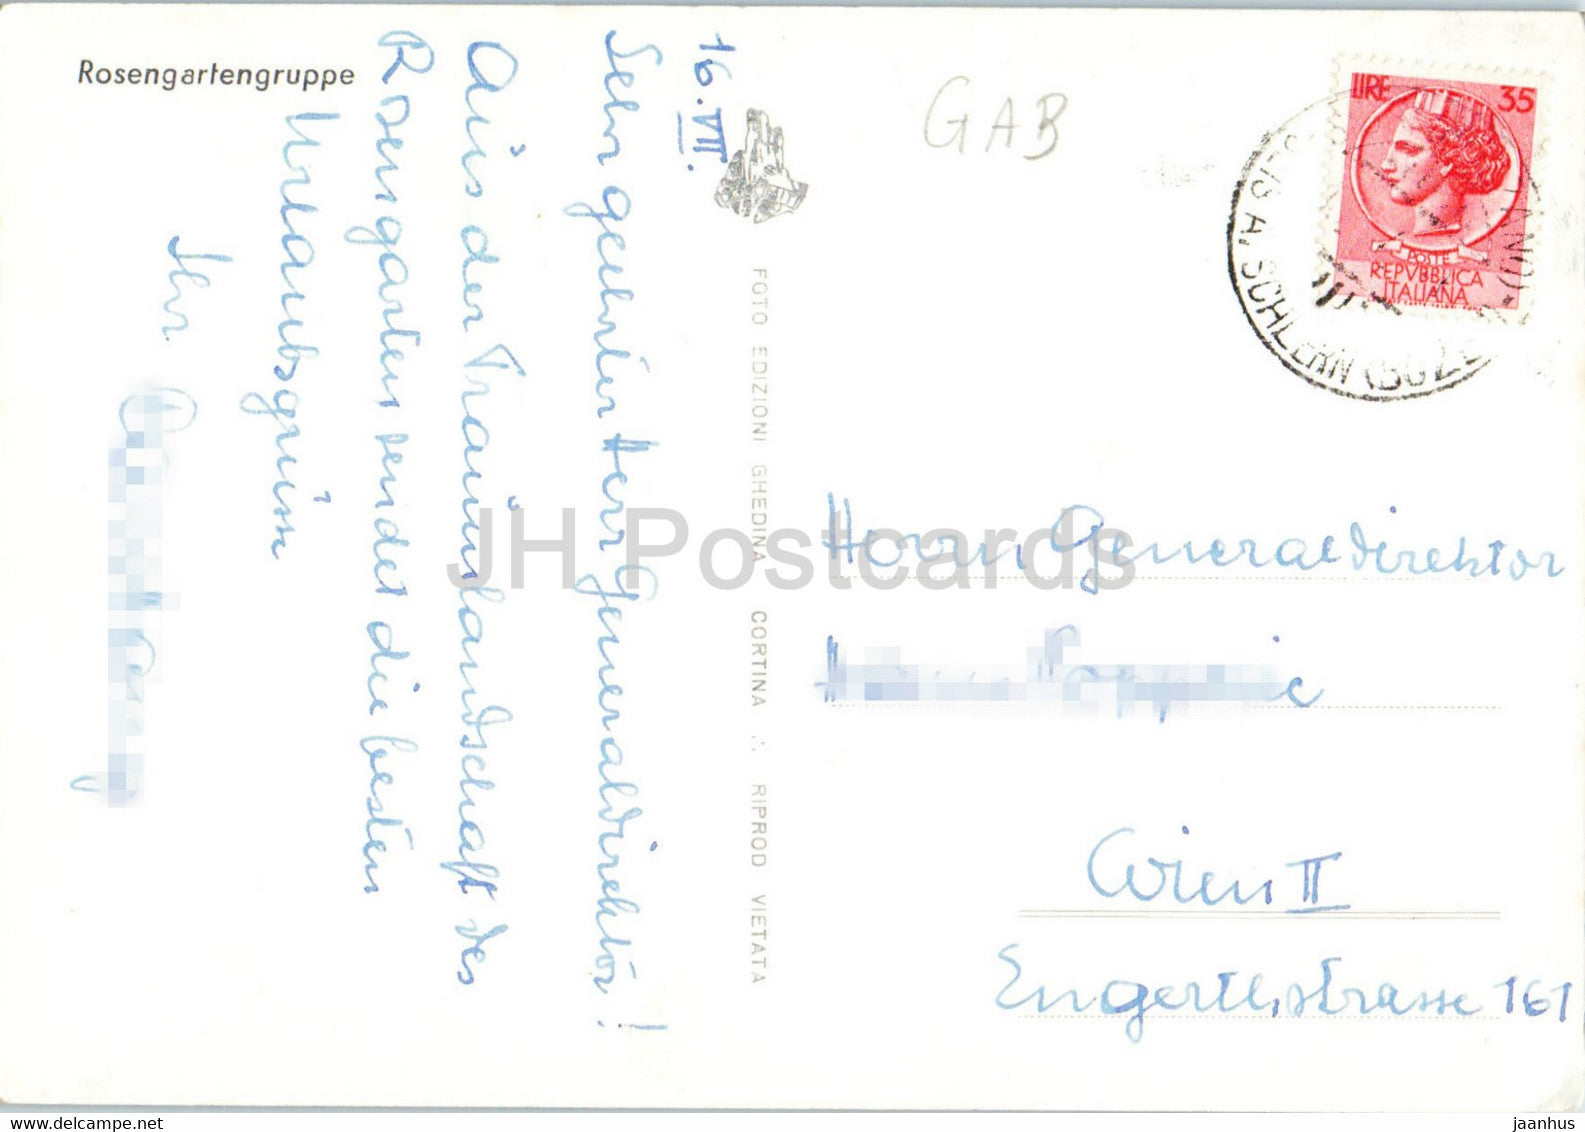 Rosengartengruppe
16.VII.
Sehr geehrter Herr Generaldirektor!
Aus der Traumlandschaft des
Rosengarten sendet die besten
Urlaubsgrüsse
Ihr
FOTO EDIZIONI GHEDINA CORTINA ∴ RIPROD VIETATA
GAB
LIRE 35
POSTE
REPVBBLICA
ITALIANA
SEIS A. SCHLERN (BOZEN)
Herrn Generaldirektor
Wien II
Engerthstrasse 161
JH Postcards
www.delcampe.net
jaanhus